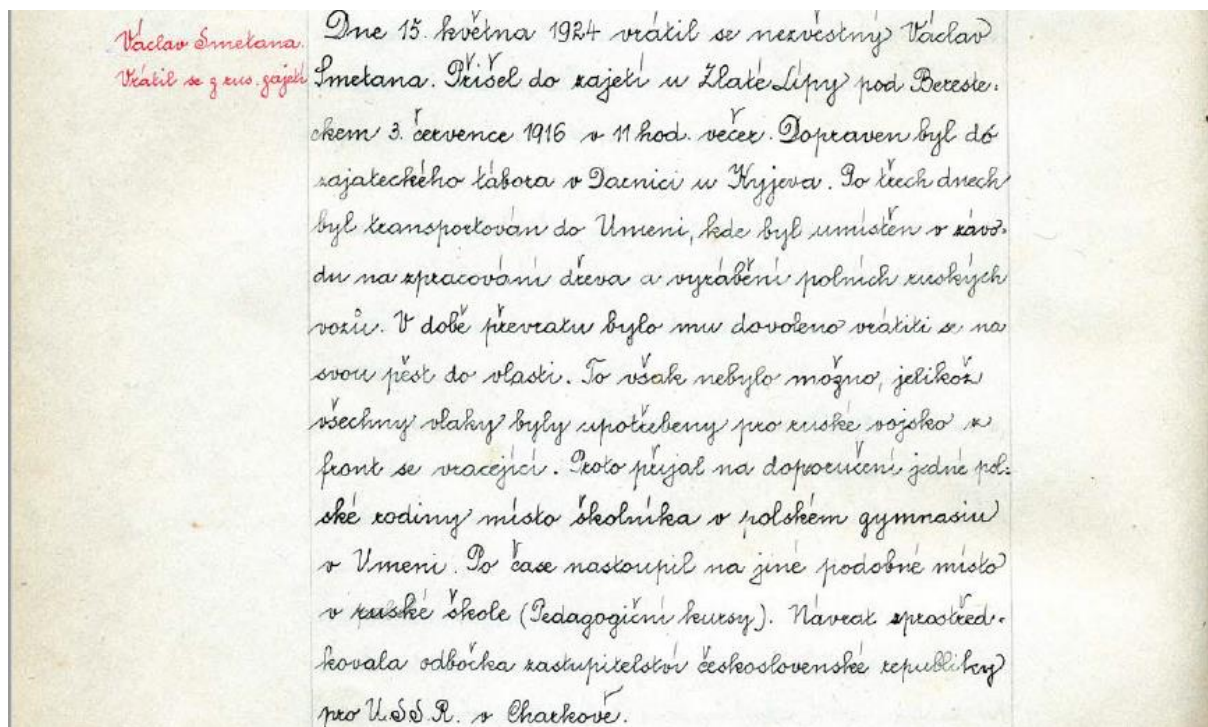 Václav Smetana.
Vrátil se z rus. zajetí
Dne 15. května 1924 vrátil se nezvěstný Václav
Smetana. Přišel do zajetí u Zlaté Lípy pod Bereste-
čkem 3. července 1916 v 11 hod. večer. Dopraven byl do
zajateckého tábora v Darnici u Kyjeva. Po třech dnech
byl transportován do Umeni, kde byl umístěn v závo-
du na zpracování dřeva a vyrábění polních ruských
vozů. V době převratu bylo mu dovoleno vrátiti se na
svou pěst do vlasti. To však nebylo možno, jelikož
všechny vlaky byly upotřebeny pro ruské vojsko z
front se vracející. Proto přijal na doporučení jedné pol-
ské rodiny místo školníka v polském gymnasiu
v Umeni. Po čase nastoupil na jiné podobné místo
v ruské škole (Pedagogiční kursy). Návrat zprostřed-
kovala odbočka zastupitelství československé republiky
pro U.S.S.R. v Charkově.